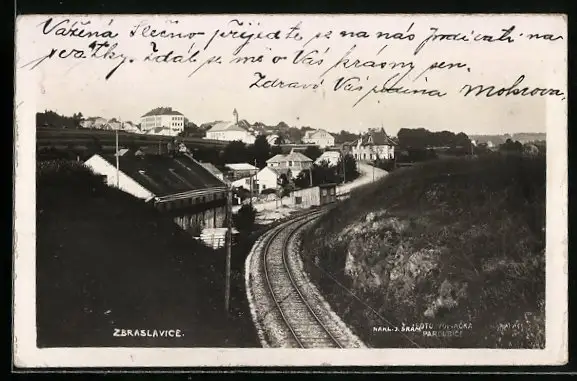 Vážená Slečno přijeďte se na nás podívati na
svátky. Zdál se mě o Vás krásný sen.
Zdraví Vás Mohrova.
ZBRASLAVICE.
NAKL. J.
PARDUBICE